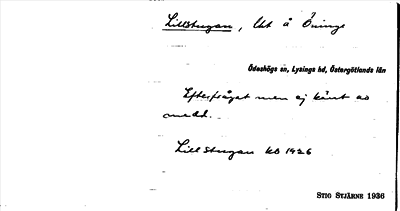 Lillstugan, Ut å Öninge
Ödeshögs sn, Lysings hd, Östergötlands län
Efterfrågat men ej känt av
medd.
Lillstugan KB 1926
STIG STJÄRNE 1936